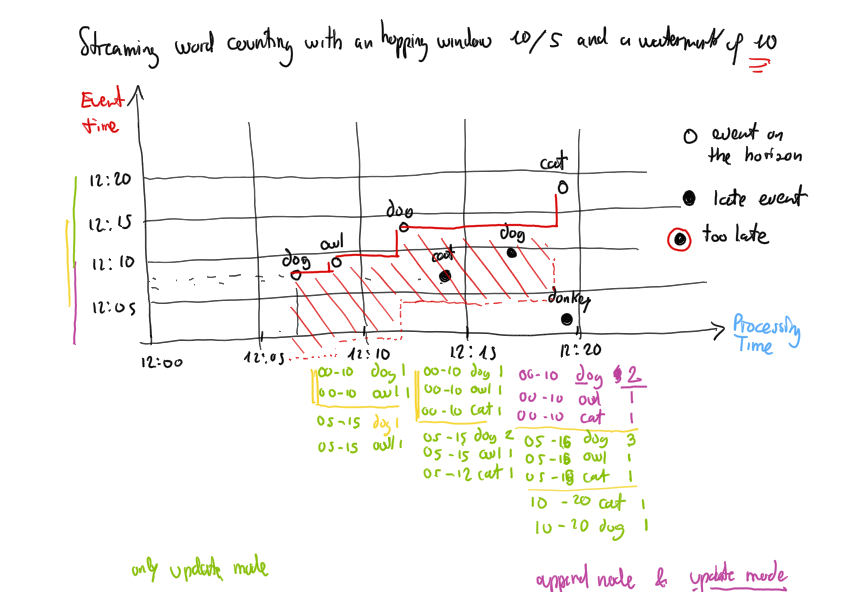 Streaming word counting with an hopping window 10/5 and a watermark of 10
Event
time
12:20
12:15
12:10
12:05
cat
dog
owl
dog
cat
dog
donkey
event on
the horizon
late event
too late
12:00
12:05
12:10
12:15
12:20
Processing
Time
00-10 dog 1
00-10 owl 1
05-15 dog 1
05-15 owl 1
00-10 dog 1
00-10 owl 1
00-10 cat 1
05-15 dog 2
05-15 owl 1
05-12 cat 1
00-10 dog 2
00-10 owl 1
00-10 cat 1
05-15 dog 3
05-15 owl 1
05-15 cat 1
10-20 cat 1
10-20 dog 1
only update mode
append mode & update mode